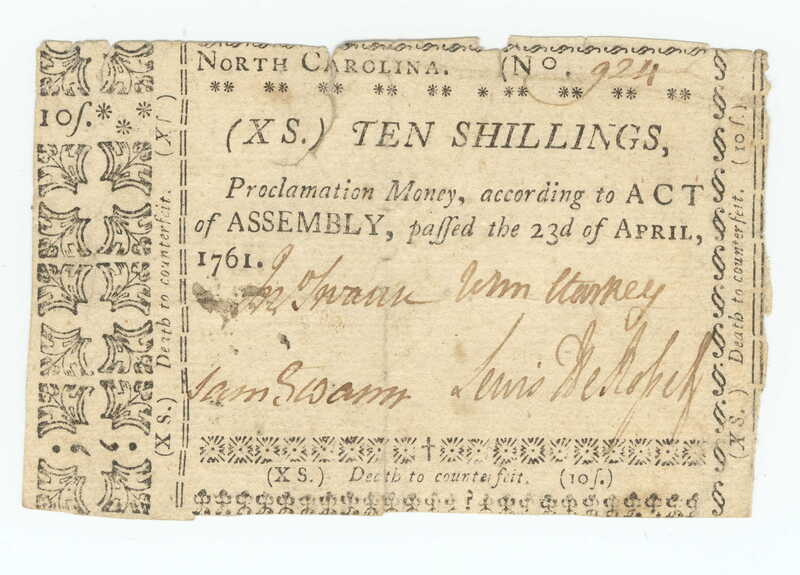 NORTH CAROLINA. (No. 924
10ſ.
(X S.) TEN SHILLINGS,
Proclamation Money, according to ACT
of ASSEMBLY, paſſed the 23d of APRIL,
1761.
Jno Swann Wm Starkey
Sam Swann Lewis DeRosset
(X S.) Death to counterfeit. (10ſ.)
(X S.) Death to counterfeit. (X ſ.)
(X S.) Death to counterfeit. (10ſ.)